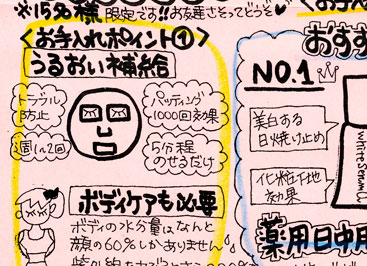 ※15名様限定です!!お友達さそってどうぞ♥
<お手入れポイント①>
うるおい補給
トラブル
防止
パッティング
1000回効果
週1〜2回
5分程
のせるだけ
ボディケアも必要
ボディの水分量はなんと
顔の60%しかありません
おすす
NO.1
美白する
日焼け止め
化粧下地
効果
薬用日中用